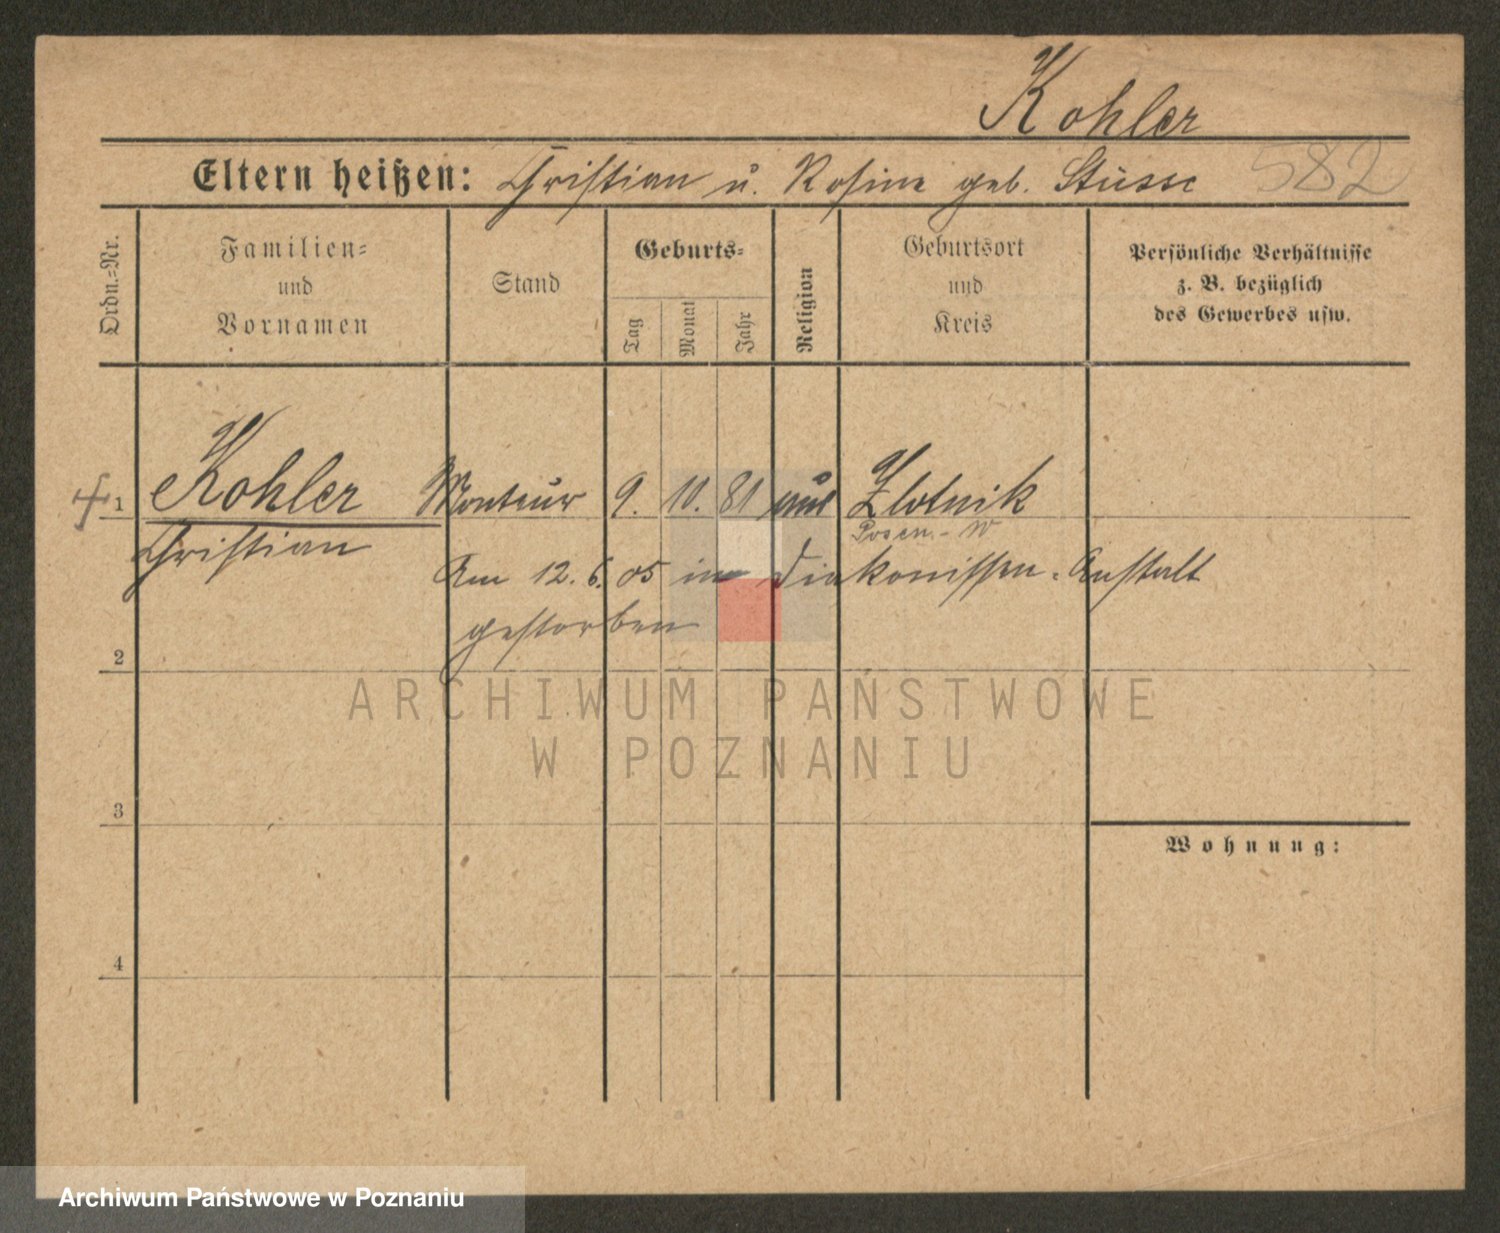 Kohler
Eltern heißen: Christian u. Rosine geb. Stüsse 582
Ordn.=Nr.
Familien=
und
Vornamen
Stand
Geburts=
Tag
Monat
Jahr
Religion
Geburtsort
und
Kreis
Persönliche Verhältnisse
z. B. bezüglich
des Gewerbes usw.
1 Kohler Monteur 9. 10. 81 Zlotnik
Posen. - W
Christian
Am 12. 6. 05 in Diakonissen-Anstalt
gestorben
2
ARCHIWUM PAŃSTWOWE
W POZNANIU
3
Wohnung:
4
Archiwum Państwowe w Poznaniu